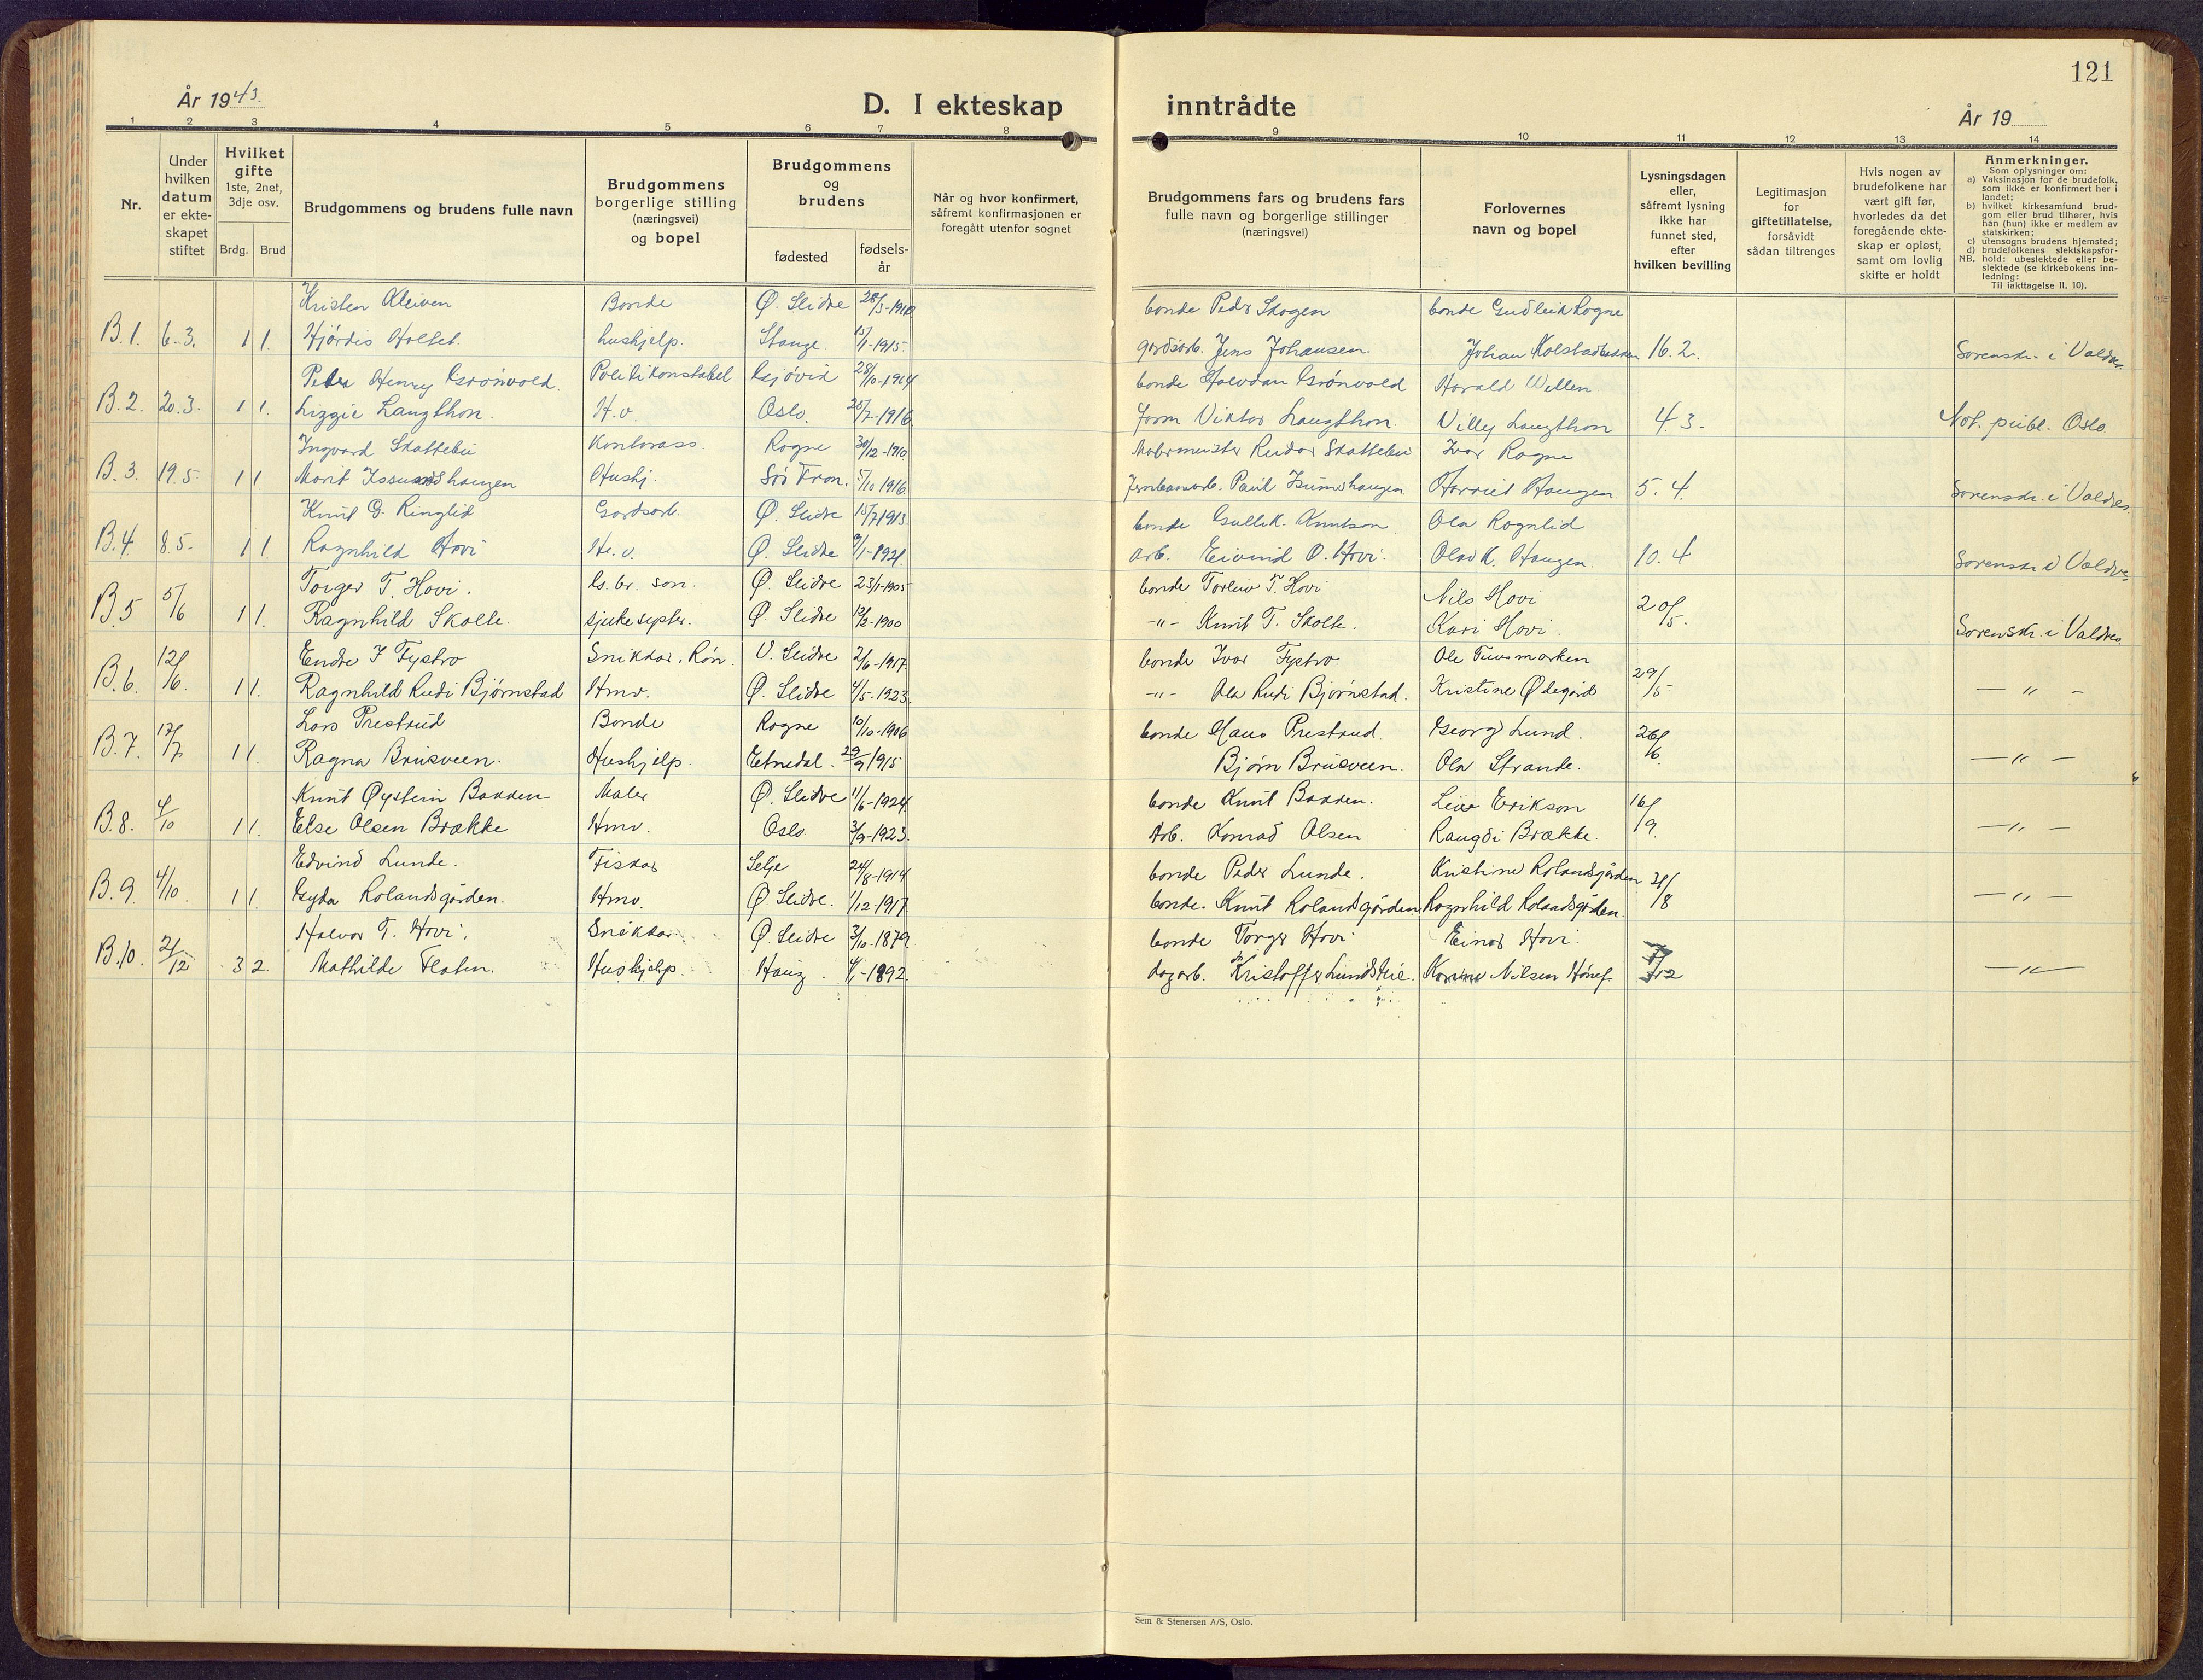 121
År 1943.
D. I ekteskap inntrådte
År 19
1 2 3 4 5 6 7 8 9 10 11 12 13 14
Nr.
Under hvilken datum er ekte-skapet stiftet
Hvilket gifte 1ste, 2net, 3dje osv.
Brdg. Brud
Brudgommens og brudens fulle navn
Brudgommens borgerlige stilling (næringsvei) og bopel
Brudgommens og brudens
fødested
fødsels-år
Når og hvor konfirmert, såfremt konfirmasjonen er foregått utenfor sognet
Brudgommens fars og brudens fars fulle navn og borgerlige stillinger (næringsvei)
Forlovernes navn og bopel
Lysningsdagen eller, såfremt lysning ikke har funnet sted, efter hvilken bevilling
Legitimasjon for giftetillatelse, forsåvidt sådan tiltrenges
Hvis nogen av brudefolkene har vært gift før, hvorledes da det foregående ekte-skap er opløst, samt om lovlig skifte er holdt
Anmerkninger.
Som oplysninger om:
a) Vaksinasjon for de brudefolk, som ikke er konfirmert her i landet;
b) hvilket kirkesamfund brud-gom eller brud tilhører, hvis han (hun) ikke er medlem av statskirken;
c) utensogns brudens hjemsted;
d) brudefolkenes slektskapsfor-hold: ubeslektede eller be-slektede (se kirkebokens inn-ledning:
NB.
Til iakttagelse II. 10).
Kristen Kleiven Bonde Ø. Slidre 28/3-1910 bonde Peder Skogen bonde Gudleik Rogne
B.1. 6.3. 1 1. Hjördis Holtet. hushjelp. Stange. 15/1-1915. gardsarb. Jens Johansen. Johan Kolstadbakken 16.2. Sorenskr. i Valdres
Peder Henry Grönvold. Politikonstabel Gjövik 28/10-1914 bonde Halvdan Grönvold Harald Wellen
B.2. 20.3. 1 1. Lizzie Langthon. H.v. Oslo. 25/7-1916. Form Viktor Langthon. Villy Langthon 4.3. Not. publ. Oslo.
Ingvard Skattebu Kontorass. Rogne 30/12-1910 Malermester Reidar Skattebu Ivar Rogne
B.3. 19.5. 1 1. Marit haugen Hushj. Sör Fron. 5/10 1916. Paul haugen Harriet Haugen 5.4. Sorenskr. i Valdres.
Knut G. Ringlid Gardsarb. Ø. Slidre 15/7 1913. bonde Gullik Knutson Ola Rognlid
B.4. 8.5. 1 1. Ragnhild Hovi H.v. Ø. Slidre 9/1-1921. arb. Eivind O. Hovi. Olav K. Haugen. 10.4 Sorenskr. i Valdres
Torger T. Hovi. G. br. son. Ø. Slidre 23/1-1905 bonde Torleiv T. Hovi Nils Hovi
B.5 5/6 1 1. Ragnhild Skolte. sjukesyster. Ø. Slidre 12/2-1900 -"- Knut T. Skolte. Kari Hovi. 20/5. Sorenskr. i Valdres
Endre I Fystro Snikkar. Røn. V. Slidre 2/6-1917. bonde Ivar Fystro. Ole Tuvsmarken
B.6. 12/6 1 1. Ragnhild Rudi Bjørnstad Hmv. Ø. Slidre 4/5-1923. -"- Ola Rudi Bjørnstad. Kristine Ødegård 29/5 - " -
Lars Prestrud Bonde Rogne 10/10-1906 bonde Hans Prestrud. Georg Lund.
B.7. 17/7 1 1. Ragna Brusveen. Hushjelp. Etnedal. 29/9 1915 Bjørn Brusveen. Ola Strande. 26/6. - " -
Knut Øystein Bakken Maler Ø. Slidre 11/6-1924. bonde Knut Bakken. Leiv Erikson
B.8. 4/10 1 1. Else Olsen Brække Hmv. Oslo 3/9-1923. Arb. Konrad Olsen Raugdi Brække. 16/9. - " -
Edvind Lunde. Fiskar Selje 24/8-1914 bonde Peder Lunde. Kristine Rolandsgården
B.9. 4/10 1 1. Gyda Rolandsgården. Hmv. Ø. Slidre. 1/12-1917 bonde. Knut Rolandsgården Ragnhild Rolandsgården. 31/8 - " -
Halvor T. Hovi. Snikkar Ø. Slidre 3/10-1879 bonde Torger Hovi Einar Hovi.
B.10. 2/12 3 2. Mathilde Flaten. Hushjelp. Haug. 4/1-1892. dagarb. Kristoffer Lundsteie. Nilsen Hönef. /12 - " -
Sem & Stenersen A/S, Oslo.